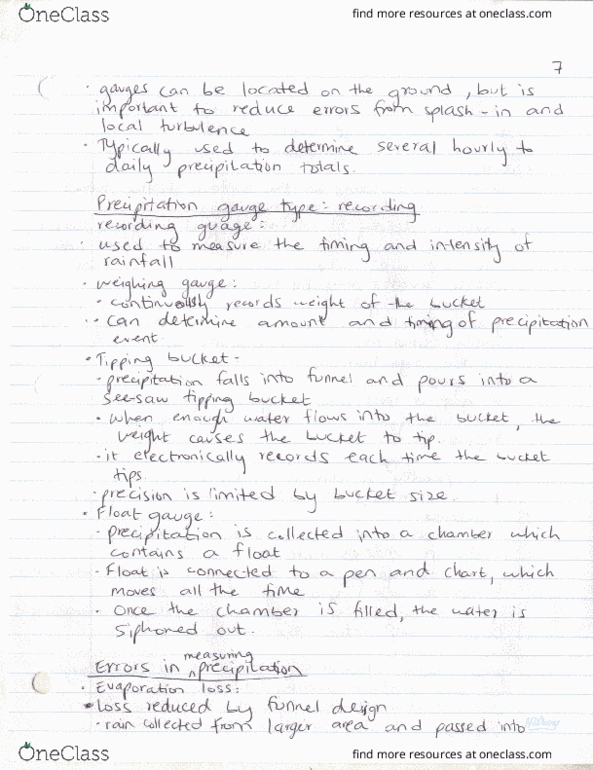 OneClass
find more resources at oneclass.com
7
· gauges can be located on the ground, but is
important to reduce errors from splash-in and
local turbulence
· Typically used to determine several hourly to
daily precipitation totals.
Precipitation gauge type: recording
recording guage:
· used to measure the timing and intensity of
rainfall
· weighing gauge:
· continuously records weight of the bucket
· can determine amount and timing of precipitation
event.
· Tipping bucket -
· precipitation falls into funnel and pours into a
see-saw tipping bucket
· when enough water flows into the bucket, the
weight causes the bucket to tip.
· it electronically records each time the bucket
tips.
· precision is limited by bucket size.
· Float gauge:
· precipitation is collected into a chamber which
contains a float
· Float is connected to a pen and chart, which
moves all the time
· Once the chamber is filled, the water is
siphoned out.
Errors in measuring precipitation
· Evaporation loss:
· loss reduced by funnel design
· rain collected from larger area and passed into
OneClass
find more resources at oneclass.com